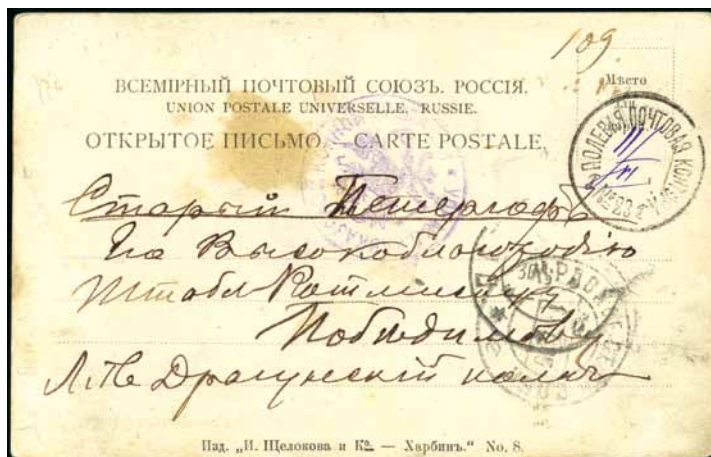 109
ВСЕМІРНЫЙ ПОЧТОВЫЙ СОЮЗЪ. РОССІЯ.
UNION POSTALE UNIVERSELLE, RUSSIE.
ОТКРЫТОЕ ПИСЬМО. — CARTE POSTALE.
Мѣсто
для
ПОЛЕВАЯ ПОЧТОВАЯ КОНТ
№ 23
III
VI
Старый Петергофъ
Его Высокоблагородію
Штабъ-Ротмистру
Побѣдимову
Л. Гв. Драгунскій полкъ
Изд. „И. Щелокова и Ко. — Харбинъ.“ No. 8.